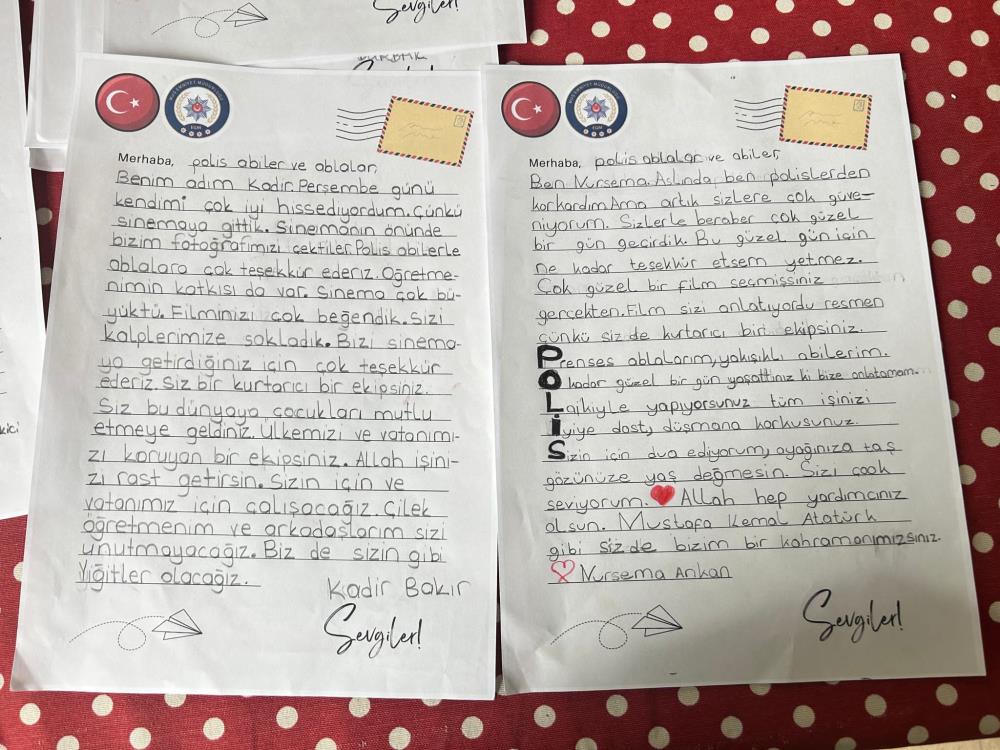 Sevgiler!
Merhaba, polis abiler ve ablalar,
Benim adım Kadir. Perşembe günü
kendimi çok iyi hissediyordum. Çünkü
sinemaya gittik. Sinemanın önünde
bizim fotoğrafımızı çektiler. Polis abilerle
ablalara çok teşekkür ederiz. Öğretme-
nimin katkısı da var. Sinema çok bü-
yüktü. Filminizi çok beğendik. Sizi
kalplerimize sakladık. Bizi sinema-
ya getirdiğiniz için çok teşekkür
ederiz. Siz bir kurtarıcı bir ekipsiniz.
Siz bu dünyaya çocukları mutlu
etmeye geldiniz. Ülkemizi ve vatanımı-
zı koruyan bir ekipsiniz. Allah işini-
zi rast getirsin. Sizin için ve
vatanımız için çalışacağız. Çilek
öğretmenim ve arkadaşlarım sizi
unutmayacağız. Biz de sizin gibi
Yiğitler olacağız.
Kadir Bakır
Sevgiler!
Merhaba, polis ablalar ve abiler,
Ben Nursema. Aslında ben polislerden
korkardım. Ama artık sizlere çok güve-
niyorum. Sizlerle beraber çok güzel
bir gün geçirdik. Bu güzel gün için
ne kadar teşekkür etsem yetmez.
Çok güzel bir film seçmişsiniz
gerçekten. Film sizi anlatıyordu resmen
çünkü siz de kurtarıcı biri ekipsiniz.
Prenses ablalarım, yakışıklı abilerim.
O kadar güzel bir gün yaşattınız ki bize anlatamam.
Laikiyle yapıyorsunuz tüm işinizi
İyiye dost, düşmana korkusunuz.
Sizin için dua ediyorum, ayağınıza taş
gözünüze yaş değmesin. Sizi çook
seviyorum. Allah hep yardımcınız
olsun. Mustafa Kemal Atatürk
gibi siz de bizim bir kahramanımızsınız.
Nursema Arıkan
Sevgiler!